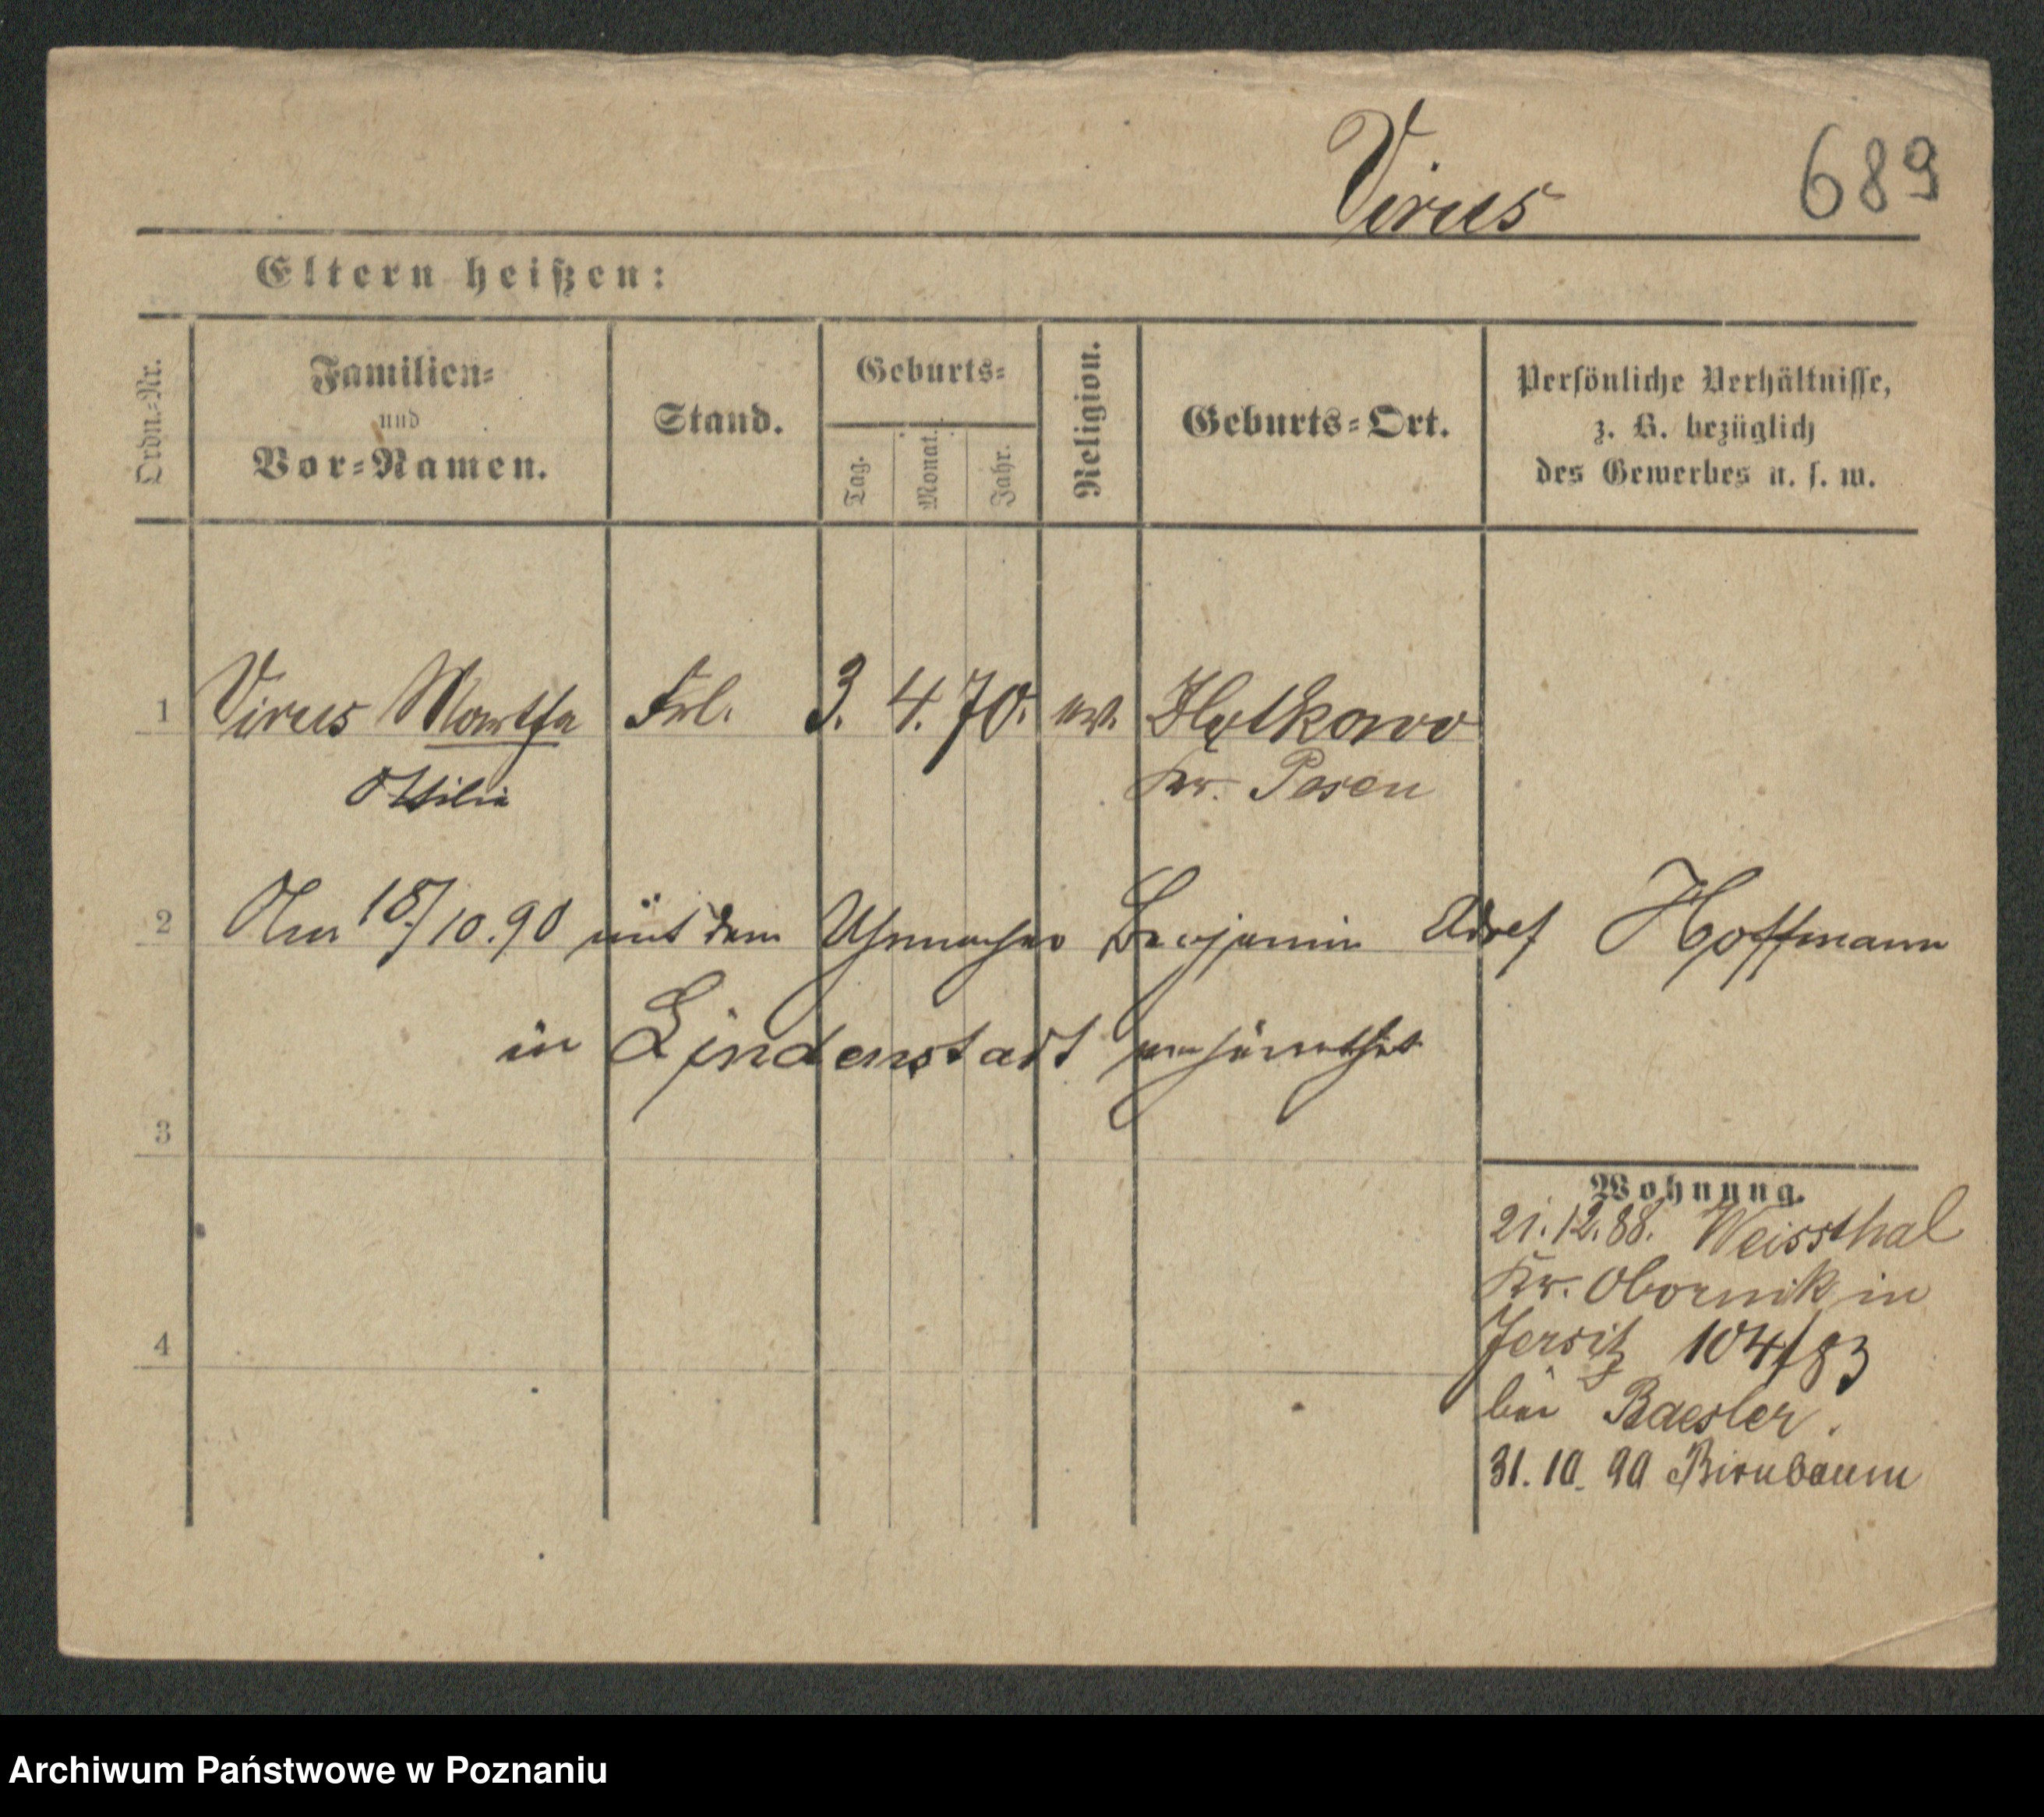 Virus 689
Eltern heißen:
Ordn.-Nr. Familien- und Vor-Namen. Stand. Geburts- Tag. Monat. Jahr. Religion. Geburts-Ort. Persönliche Verhältnisse, z. B. bezüglich des Gewerbes u. s. w.
1 Virus Martha Frl. 3. 4. 70. ev. Zlotkowo
Ottilie Kr. Posen
2 Am 18/10.90 mit dem Uhrmacher Benjamin Adolf Hoffmann
in Lindenstadt verheirathet
3
Wohnung.
21.12.88. Weissthal
Kr. Obornik in
4 Jersitz 104/83
bei Baesler.
31.10.90 Birnbaum
Archiwum Państwowe w Poznaniu